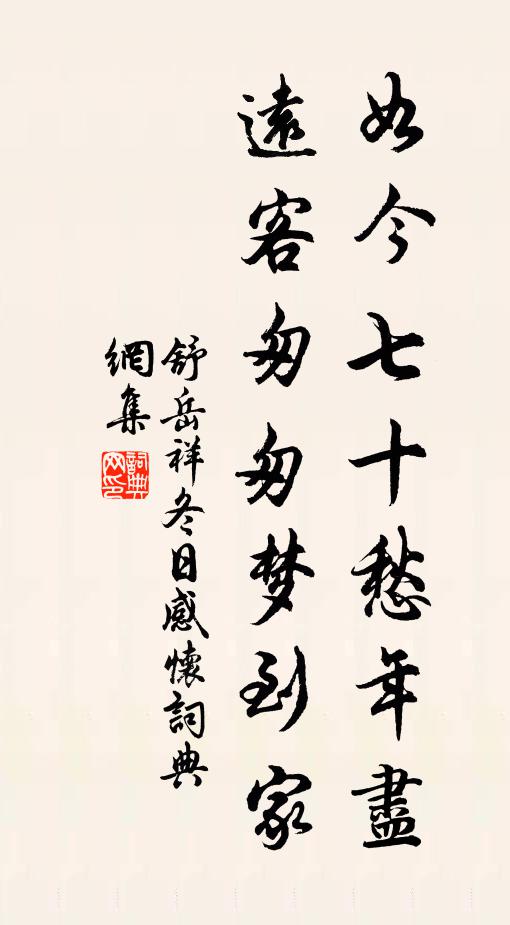 如今七十愁年盡
遠客匆匆梦到家
舒岳祥冬日感懷詞典
網集
詞典网印